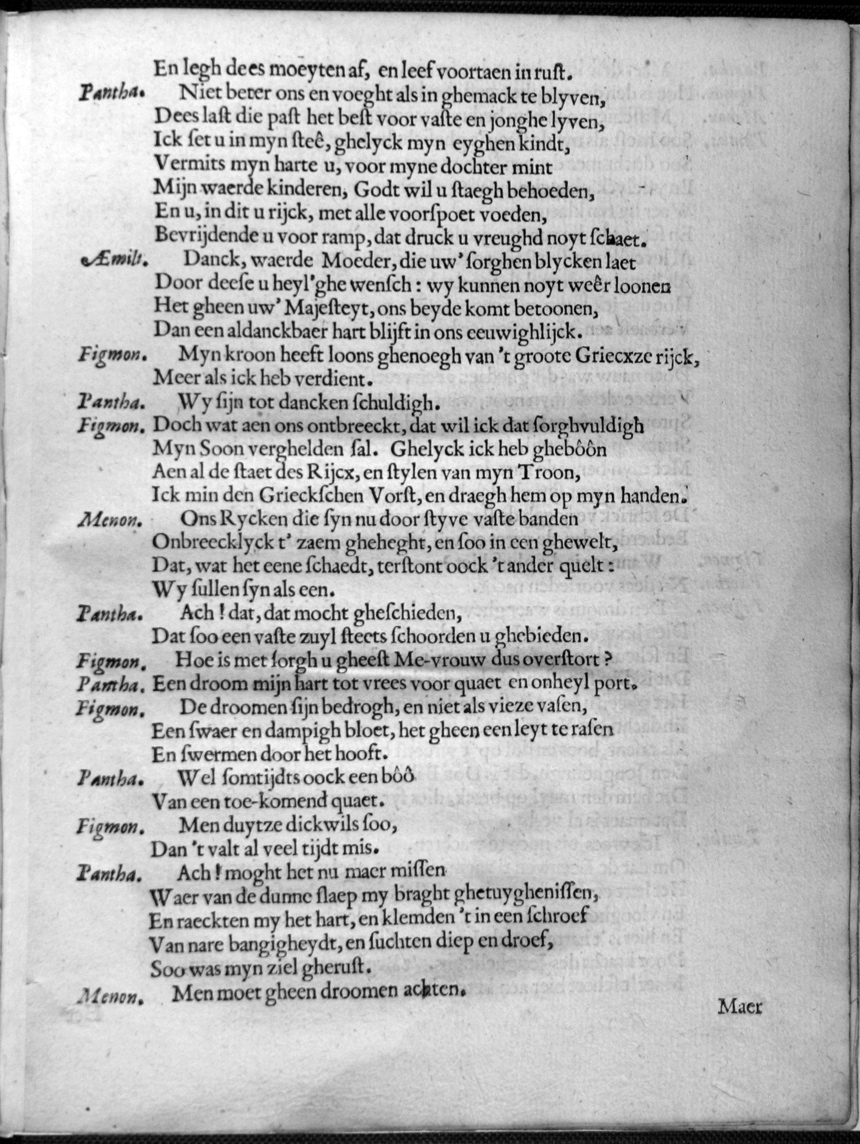 En legh dees moeyten af, en leef voortaen in ruſt.
Pantha. Niet beter ons en voeght als in ghemack te blyven,
Dees laſt die paſt het beſt voor vaſte en jonghe lyven,
Ick ſet u in myn ſteê, ghelyck myn eyghen kindt,
Vermits myn harte u, voor myne dochter mint
Mijn waerde kinderen, Godt wil u ſtaegh behoeden,
En u, in dit u rijck, met alle voorſpoet voeden,
Bevrijdende u voor ramp, dat druck u vreughd noyt ſchaet.
Æmilt. Danck, waerde Moeder, die uw' ſorghen blycken laet
Door deeſe u heyl'ghe wenſch : wy kunnen noyt weêr loonen
Het gheen uw' Majeſteyt, ons beyde komt betoonen,
Dan een aldanckbaer hart blijft in ons eeuwighlijck.
Figmon. Myn kroon heeft loons ghenoegh van 't groote Griecxze rijck,
Meer als ick heb verdient.
Pantha. Wy ſijn tot dancken ſchuldigh.
Figmon. Doch wat aen ons ontbreeckt, dat wil ick dat ſorghvuldigh
Myn Soon verghelden ſal. Ghelyck ick heb ghebôôn
Aen al de ſtaet des Rijcx, en ſtylen van myn Troon,
Ick min den Grieckſchen Vorſt, en draegh hem op myn handen.
Menon. Ons Rycken die ſyn nu door ſtyve vaſte banden
Onbreecklyck t' zaem gheheght, en ſoo in een ghewelt,
Dat, wat het eene ſchaedt, terſtont oock 't ander quelt :
Wy ſullen ſyn als een.
Pantha. Ach ! dat, dat mocht gheſchieden,
Dat ſoo een vaſte zuyl ſteets ſchoorden u ghebieden.
Figmon. Hoe is met ſorgh u gheeſt Me-vrouw dus overſtort ?
Pantha. Een droom mijn hart tot vrees voor quaet en onheyl port.
Figmon. De droomen ſijn bedrogh, en niet als vieze vaſen,
Een ſwaer en dampigh bloet, het gheen een leyt te raſen
En ſwermen door het hooft.
Pantha. Wel ſomtijdts oock een bôô
Van een toe-komend quaet.
Figmon. Men duytze dickwils ſoo,
Dan 't valt al veel tijdt mis.
Pantha. Ach ! moght het nu maer miſſen
Waer van de dunne ſlaep my braght ghetuygheniſſen,
En raeckten my het hart, en klemden 't in een ſchroef
Van nare bangigheydt, en ſuchten diep en droef,
Soo was myn ziel gheruſt.
Menon. Men moet gheen droomen achten.
Maer